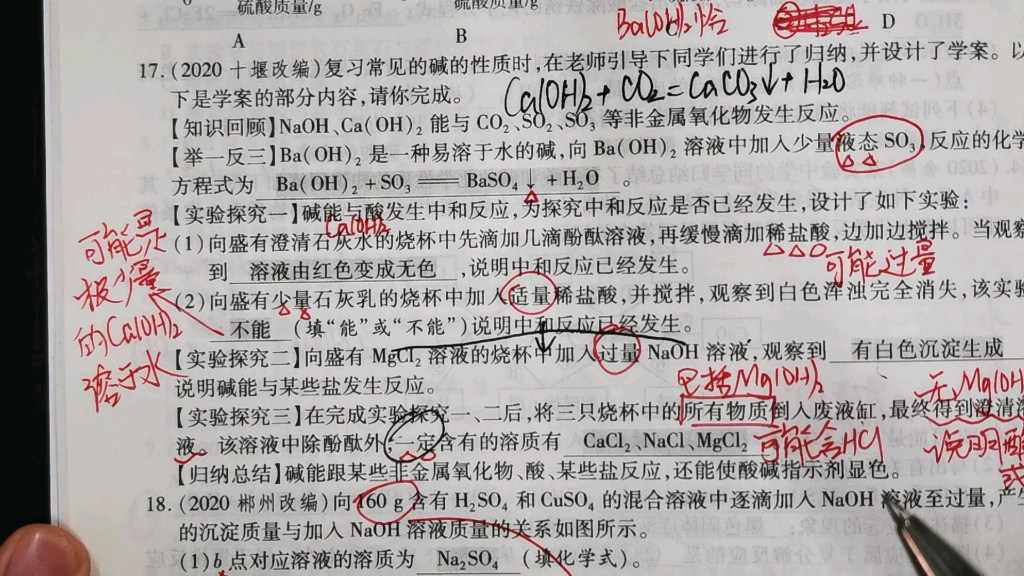 硫酸质量/g 硫酸质量/g
A B D
Ba(OH)₂
17.(2020 十堰改编)复习常见的碱的性质时,在老师引导下同学们进行了归纳,并设计了学案。以
下是学案的部分内容,请你完成。
Ca(OH)₂ + CO₂ = CaCO₃↓ + H₂O
【知识回顾】NaOH、Ca(OH)₂ 能与 CO₂、SO₂、SO₃ 等非金属氧化物发生反应。
【举一反三】Ba(OH)₂ 是一种易溶于水的碱,向 Ba(OH)₂ 溶液中加入少量液态 SO₃,反应的化学
方程式为 Ba(OH)₂ + SO₃ ══ BaSO₄↓ + H₂O 。
【实验探究一】碱能与酸发生中和反应,为探究中和反应是否已经发生,设计了如下实验:
Ca(OH)₂
(1)向盛有澄清石灰水的烧杯中先滴加几滴酚酞溶液,再缓慢滴加稀盐酸,边加边搅拌。当观察
到 溶液由红色变成无色 ,说明中和反应已经发生。
可能过量
(2)向盛有少量石灰乳的烧杯中加入适量稀盐酸,并搅拌,观察到白色浑浊完全消失,该实验
不能 (填“能”或“不能”)说明中和反应已经发生。
可能是
极少量
的Ca(OH)₂
溶于水
【实验探究二】向盛有 MgCl₂ 溶液的烧杯中加入过量 NaOH 溶液,观察到 有白色沉淀生成
说明碱能与某些盐发生反应。
包括Mg(OH)₂
无Mg(OH
【实验探究三】在完成实验探究一、二后,将三只烧杯中的所有物质倒入废液缸,最终得到澄清溶
液。该溶液中除酚酞外,一定含有的溶质有 CaCl₂、NaCl、MgCl₂
可能含HCl
说明酸
【归纳总结】碱能跟某些非金属氧化物、酸、某些盐反应,还能使酸碱指示剂显色。
18.(2020 郴州改编)向 160 g 含有 H₂SO₄ 和 CuSO₄ 的混合溶液中逐滴加入 NaOH 溶液至过量,产生
的沉淀质量与加入 NaOH 溶液质量的关系如图所示。
(1)b 点对应溶液的溶质为 Na₂SO₄ (填化学式)。